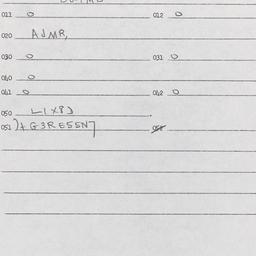 011 0 012 0
020 AJMR,
030 0 031 0
040 0
041 0 042 0
050 L1X8J
051 )+G3RE55N7